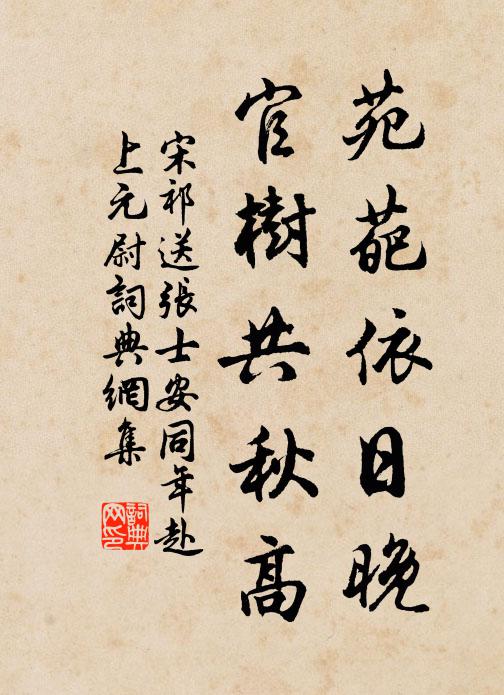 苑葩依日晚
官樹共秋高
宋祁送張士安同年赴
上元尉詞典網集
詞典网印